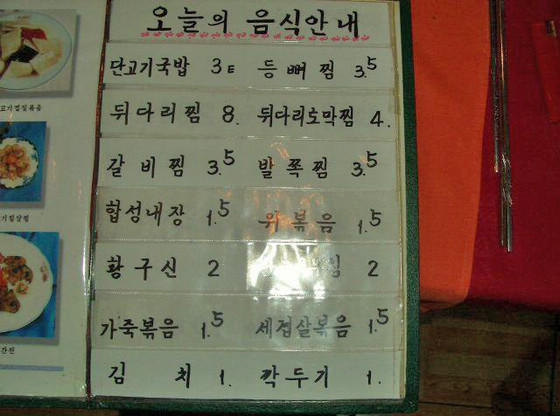 오늘의 음식안내
단고기국밥 3E 등뼈찜 3.5
뒤다리찜 8. 뒤다리토막찜 4.
갈비찜 3.5 발쪽찜 3.5
합성내장 1.5 위볶음 1.5
황구신 2 2
가죽볶음 1.5 세겹살볶음 1.5
김치 1. 깍두기 1.